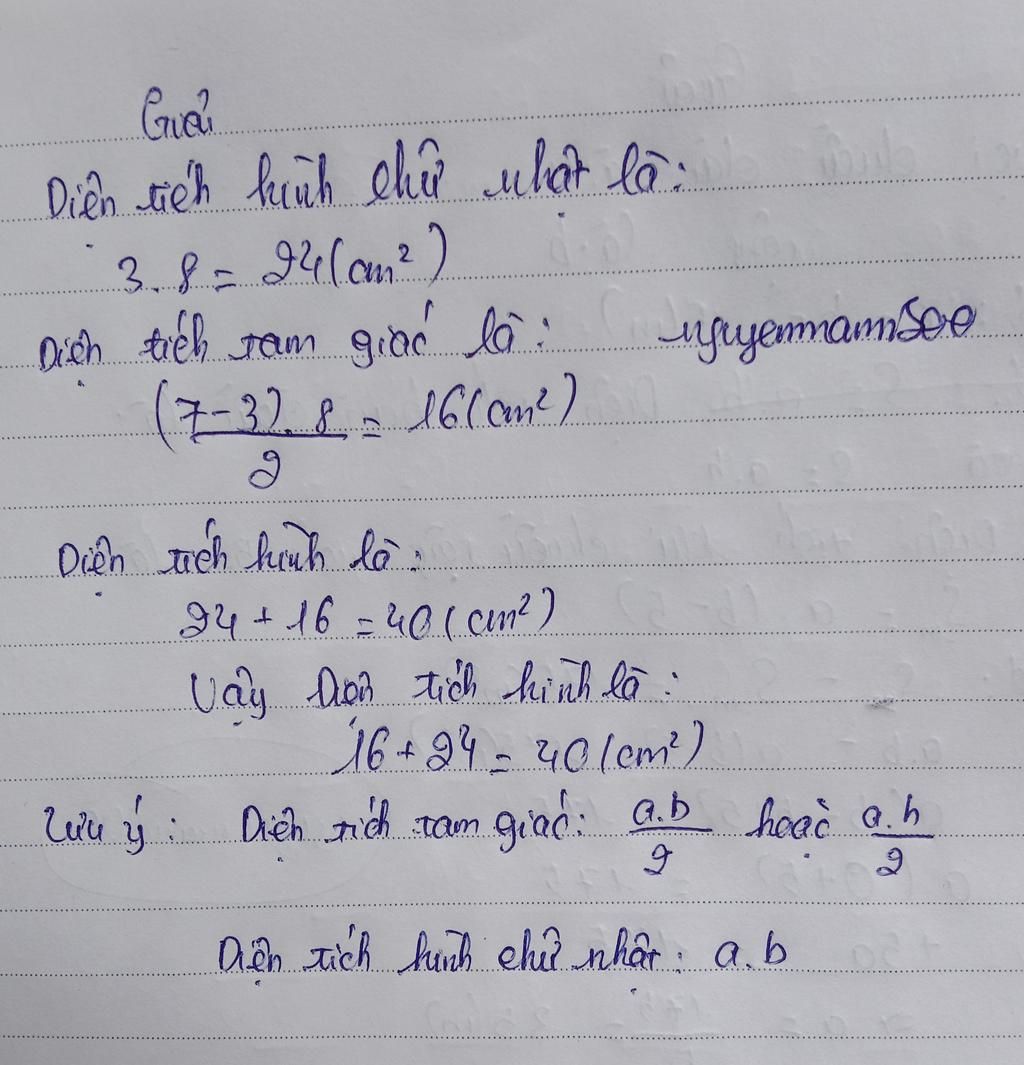 Giải
Diện tích hình chữ nhật là:
3.8 = 24(cm²)
Diện tích tam giác là: nguyenmann500
(7-3).8/2 = 16(cm²)
Diện tích hình là:
24 + 16 = 40(cm²)
Vậy Diện tích hình là:
16 + 24 = 40(cm²)
Lưu ý: Diện tích tam giác: a.b/2 hoặc a.h/2
Diện tích hình chữ nhật: a.b